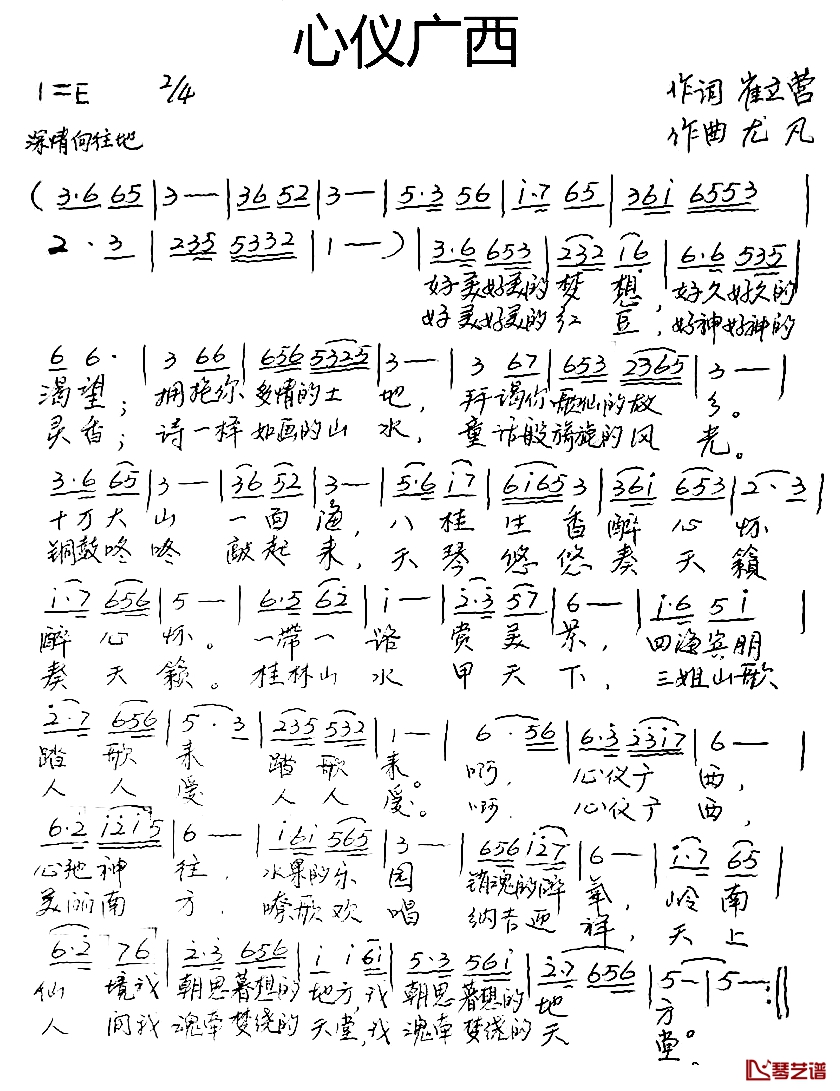 心仪广西
1=E 2/4 作词 崔立营
深情向往地 作曲 尤凡
( 3·6 65 | 3 — | 36 52 | 3 — | 5·3 56 | i·7 65 | 36i 6553 |
2·3 | 235 5332 | 1 — ) | 3·6 653 | 232 i6 | 6·6 535 |
好美好美的梦想,好久好久的
好美好美的红豆,好神好神的
6 6· | 3 66 | 656 5325 | 3 — | 3 67 | 653 2365 | 3 — |
渴望;拥抱你多情的土地,拜谒你歌仙的故乡。
灵香;诗一样如画的山水,童话般旖旎的风光。
3·6 65 | 3 — | 36 52 | 3 — | 5·6 i7 | 6i65 3 | 36i 653 | 2·3 |
十万大山一面海,八桂生香醉心怀
铜鼓咚咚敲起来,天琴悠悠奏天籁
i·7 656 | 5 — | 6·5 62 | i — | 2·3 57 | 6 — | i·6 5i |
醉心怀。一带一路赏美景,四海宾朋
奏天籁。桂林山水甲天下,三姐山歌
2·7 656 | 5·3 | 235 532 | 1 — | 6·56 | 6·3 23i7 | 6 — |
踏歌来踏歌来。啊,心仪广西,
人人爱人人爱。啊,心仪广西,
6·2 i2i5 | 6 — | i6i 565 | 3 — | 656 i27 | 6 — | i·7 65 |
心驰神往,水果的乐园销魂的醉氧,岭南
美丽南方,嘹歌欢唱纳吉迎祥,天上
6·2 76 | 2·3 656 | i i 6i | 5·3 56i | 2·7 656 | 5 — | 5 — :||
仙境我朝思暮想的地方,我朝思暮想的地方
人间我魂牵梦绕的天堂,我魂牵梦绕的天堂。
琴艺谱